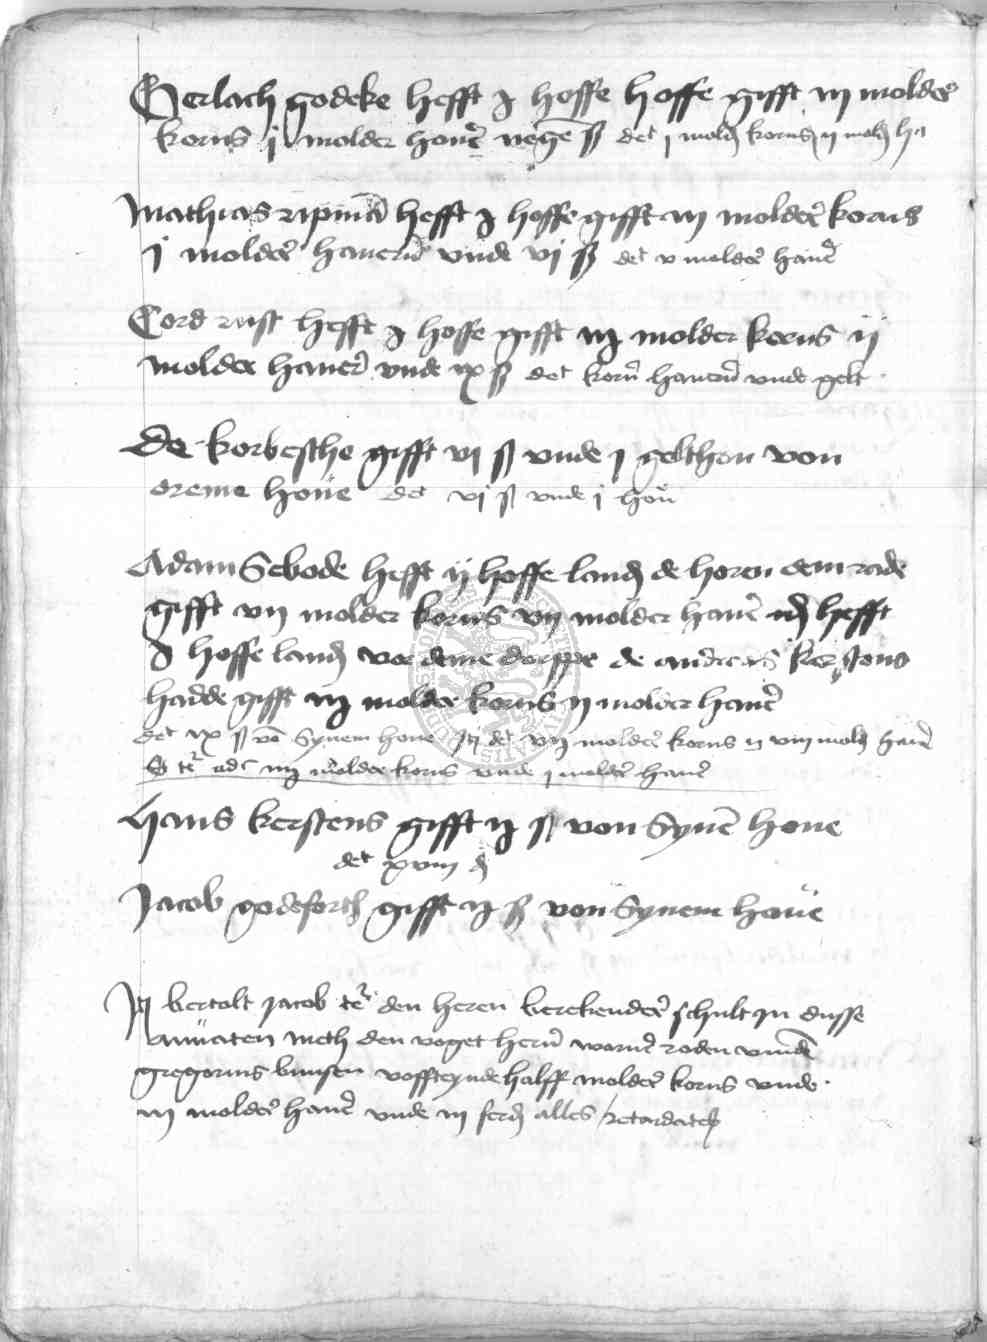 Gerlach godeke hefft j hoffe hoffe gifft iij molder
korns j molder hover neghe ß det j mold korns ij mold ha
Mathias ripman hefft j hoffe gifft iij molder korns
j molder havern unde vj ß det v molder haver
Cord rust hefft j hoffe gifft iij molder korns ij
molder haver unde ix ß det korn havern unde gelt
De korbesche gifft vj ß unde j gelthon von
oreme hove det vj ß unde j hon
Adam Sebode hefft ij hoffe land de horen dem rade
gifft vij molder korns vij molder haver hefft
j hoffe land vor deme dorppe de andreas kerstons
hadde gifft iij molder korns ij molder haver
det ix ß von Synem hove It det vij molder korns ij viij mold haver
iiij molder korns unde j molder haver
Hans kerstens gifft ij ß von Synem hove
det xviij d
Jacob godeforth gifft ij ß von Synem hove
It bertolt jacob den heren berekender schult in dusse
meth den voget hern roden
gregorius bunsen voffteynde halff molder korns unde
iij molder haver unde iij ferd alles retardaten